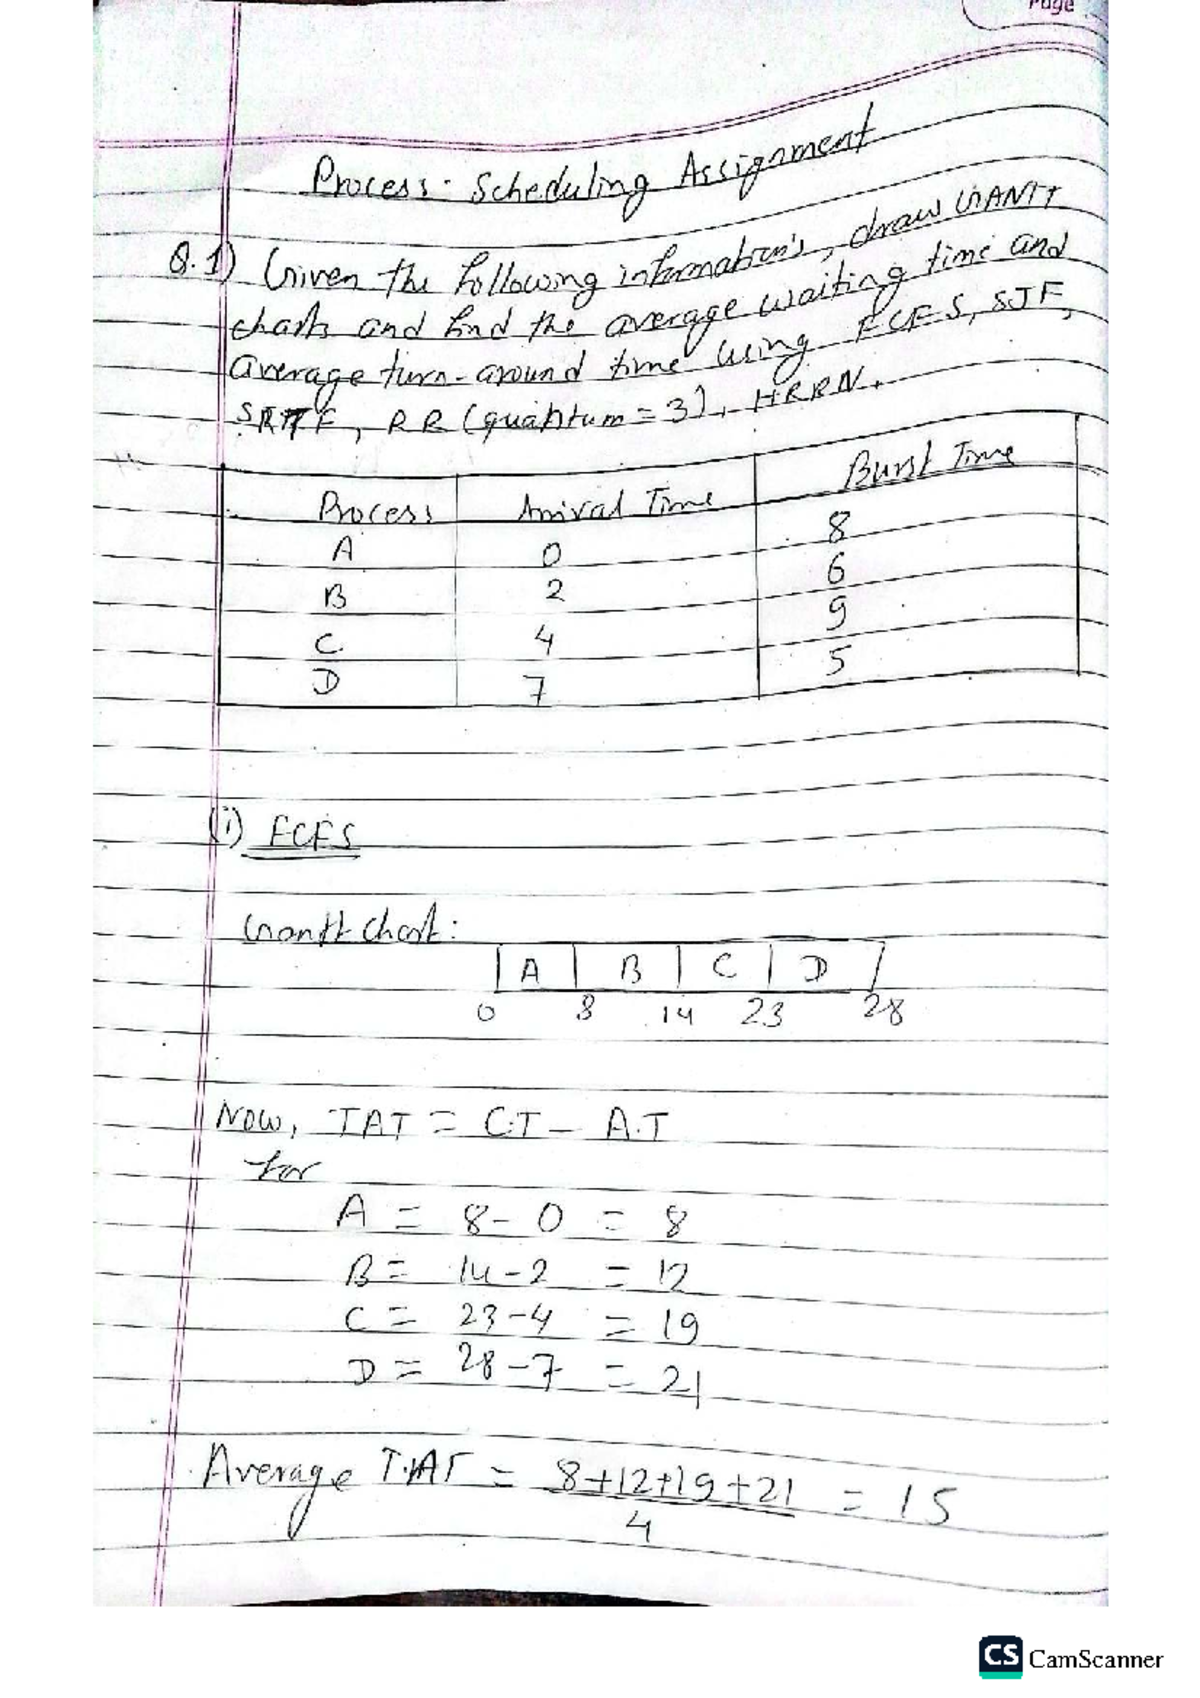 Page
Process Scheduling Assignment
Q.1) Given the following information's, draw GANTT
charts and find the average waiting time and
average turn-around time using FCFS, SJF,
SRTF, RR (quantum = 3), HRRN.
Process Arrival Time Burst Time
A 0 8
B 2 6
C 4 9
D 7 5
(i) FCFS
Gantt Chart:
A B C D
0 8 14 23 28
Now, TAT = C.T - A.T
for
A = 8 - 0 = 8
B = 14 - 2 = 12
C = 23 - 4 = 19
D = 28 - 7 = 21
Average T.AT = 8+12+19+21 = 15
4
CS CamScanner